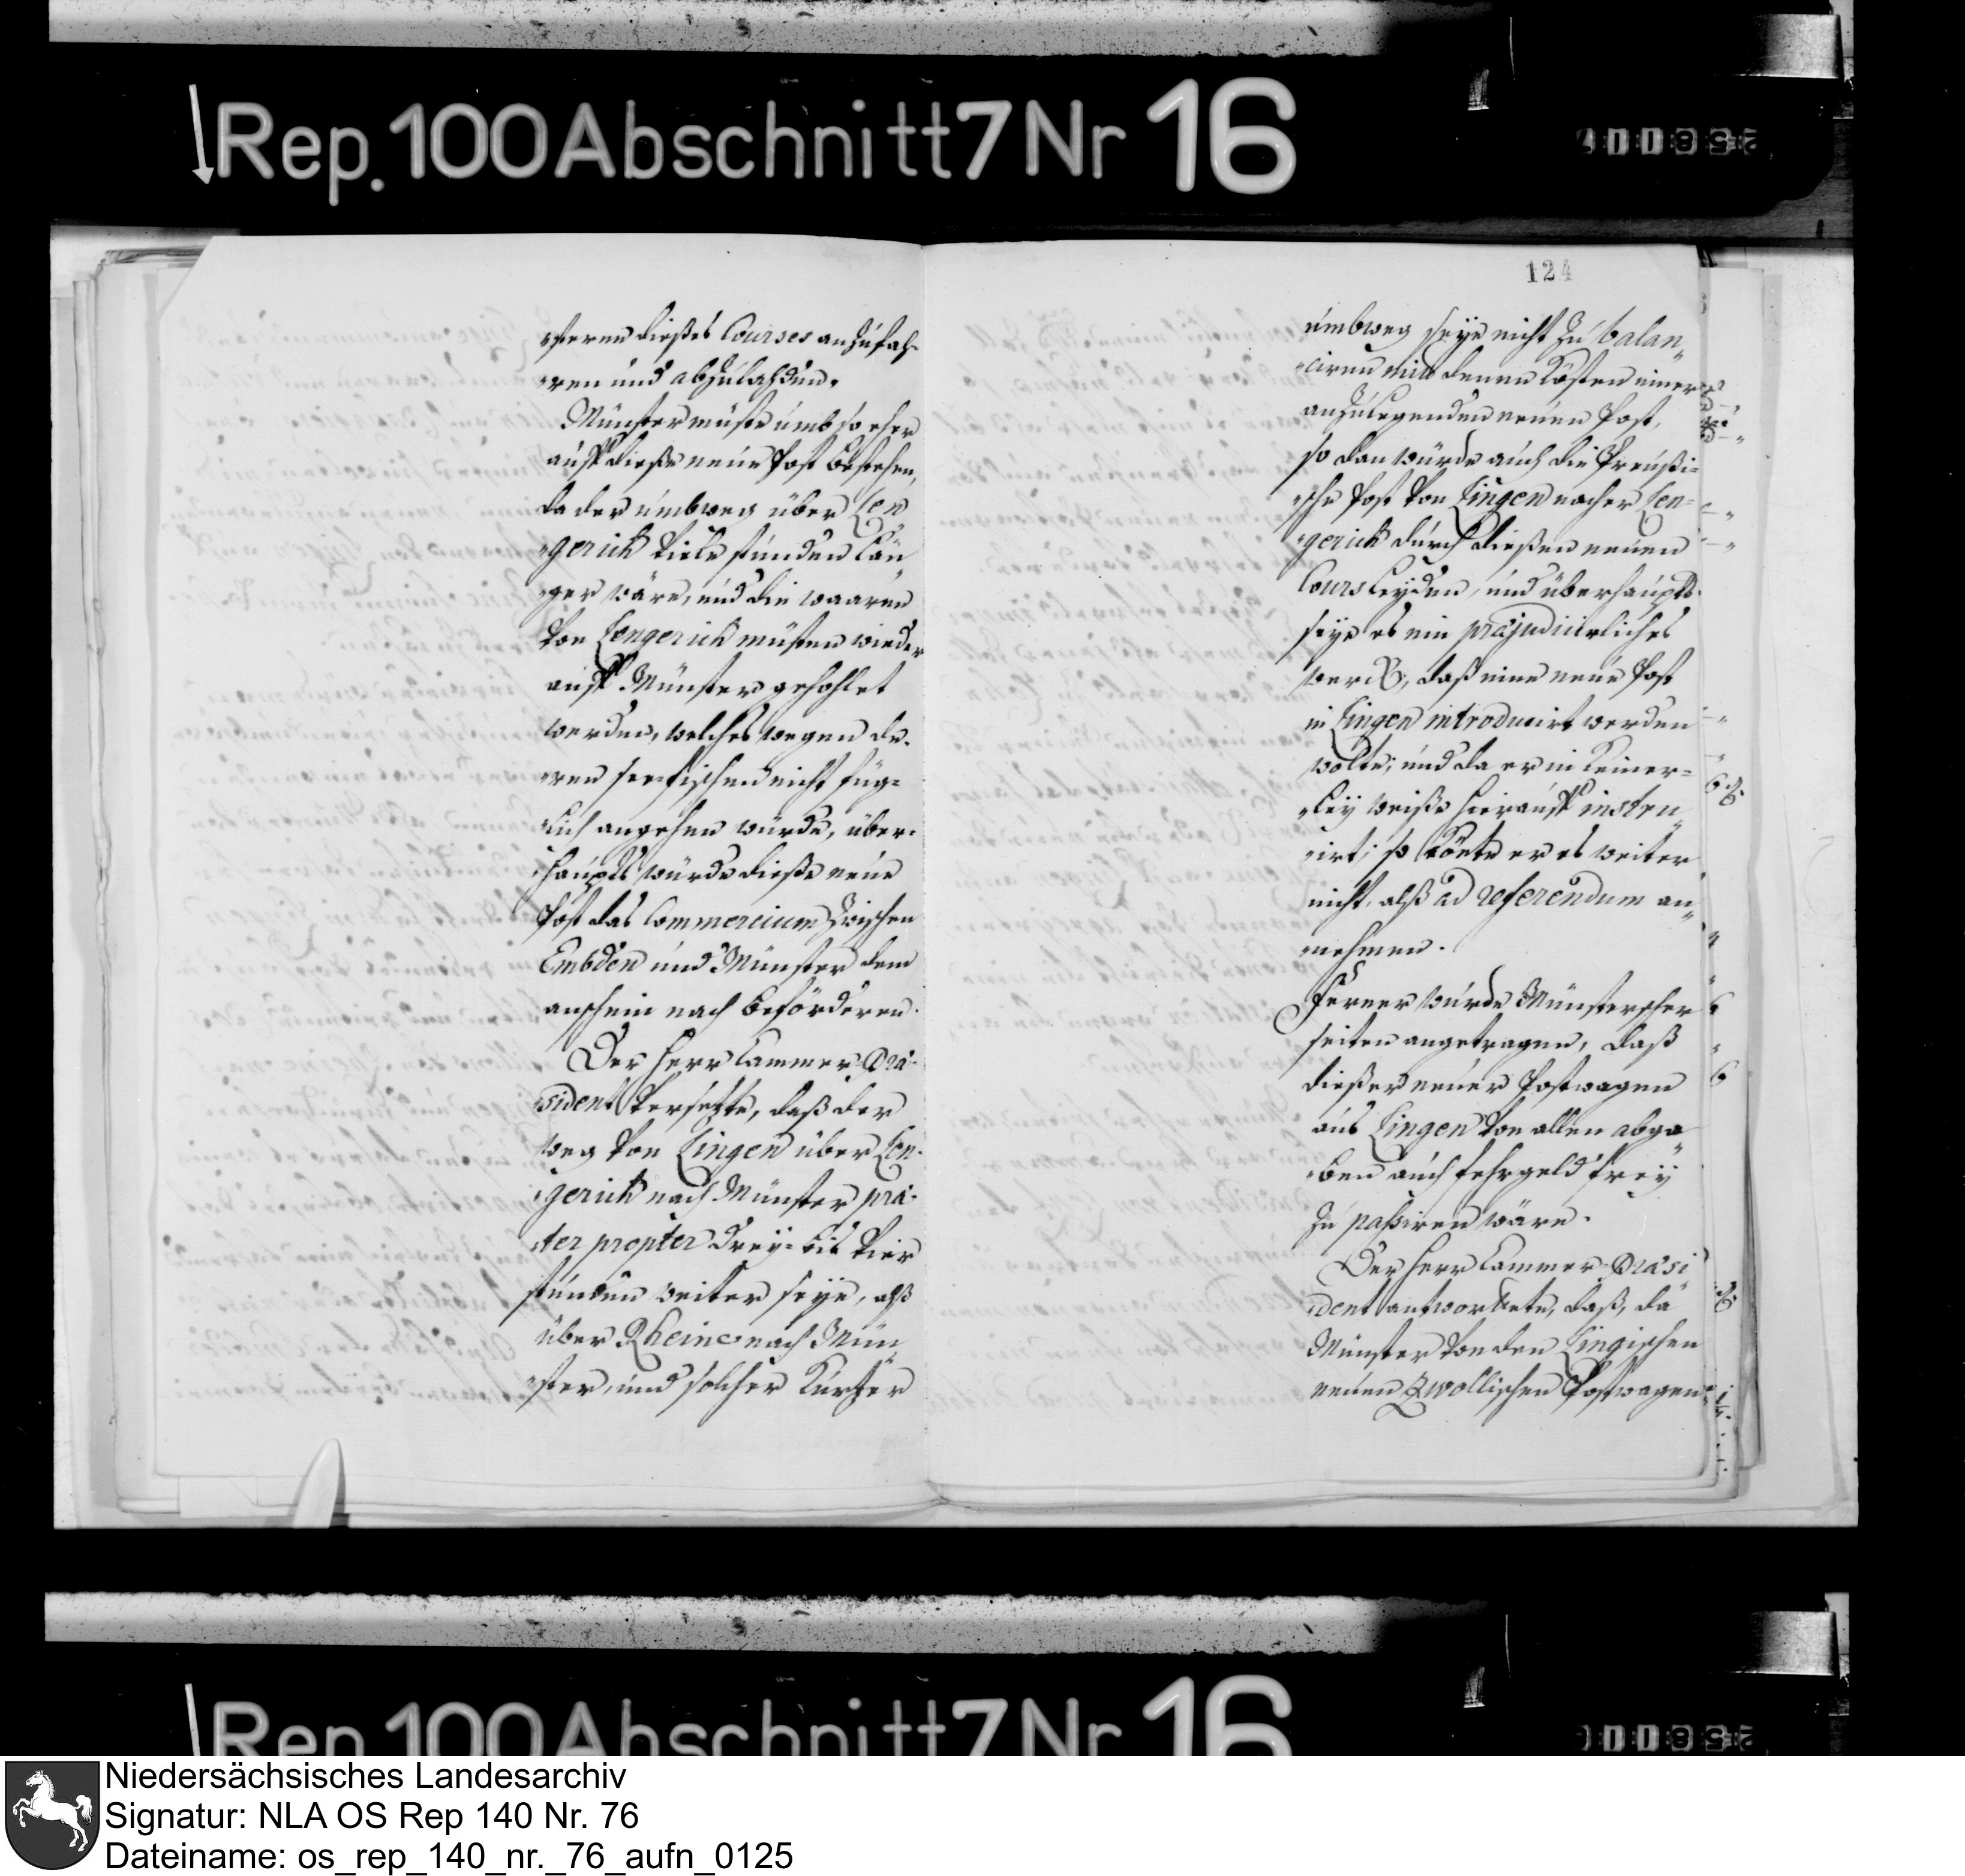 Rep. 100 Abschnitt 7 Nr 16
"steren dießes Courses anzufah-
"ren und abzuladen.
Münster müste umb so eher
auff dieße neue Post bestehen,
da der umbweg über Len
"gerich viele stunden län
"ger wäre, und die waaren
von Lengerich müsten wieder
auff Münster gehohlet
werden, welches wegen de-
"ren see-fischen nicht füg-
"lich angehen würde, über-
"haupts würde dieße neue
Post das Commercium zwischen
Embden und Münster dem
anschein nach beförderen.
Der Herr Cammer-Præ-
"sident versetzte, daß der
weg von Lingen über Len-
"gerich nach Münster præ-
"ter propter drey- bis vier
stunden weiter seye, alß
über Rheine nach Mün
"ster, und solcher kurtzer
124
umbweg seye nicht zu balan"
"ciren mit denen Kösten einer
anzulegenden neuen Post,
so dan würde auch die Preußi-
"sche Post von Lingen nacher Len-
"gerich durch dießen neuen
Cours leyden, und überhaupts
seye es ein præjudicirliches
werck, daß eine neue Post
in Lingen introducirt werden
wolte; und da er in keiner-
"ley weiße hierauff instru"
"irt; so könte er es weiter
nicht, alß ad referendum an"
"nehmen.
Ferner wurde Münsterscher
seiten angetragen, daß
dießer neuer Postwagen
aus Lingen von allen abga
"ben auch fehrgeld frey
zu passiren wäre.
Der Herr Cammer-Præsi
"dent antwortete, daß, da
Münster von den Lingischen
neuen Zwollischen Postwagen
Rep. 100 Abschnitt 7 Nr 16
Niedersächsisches Landesarchiv
Signatur: NLA OS Rep 140 Nr. 76
Dateiname: os_rep_140_nr._76_aufn_0125